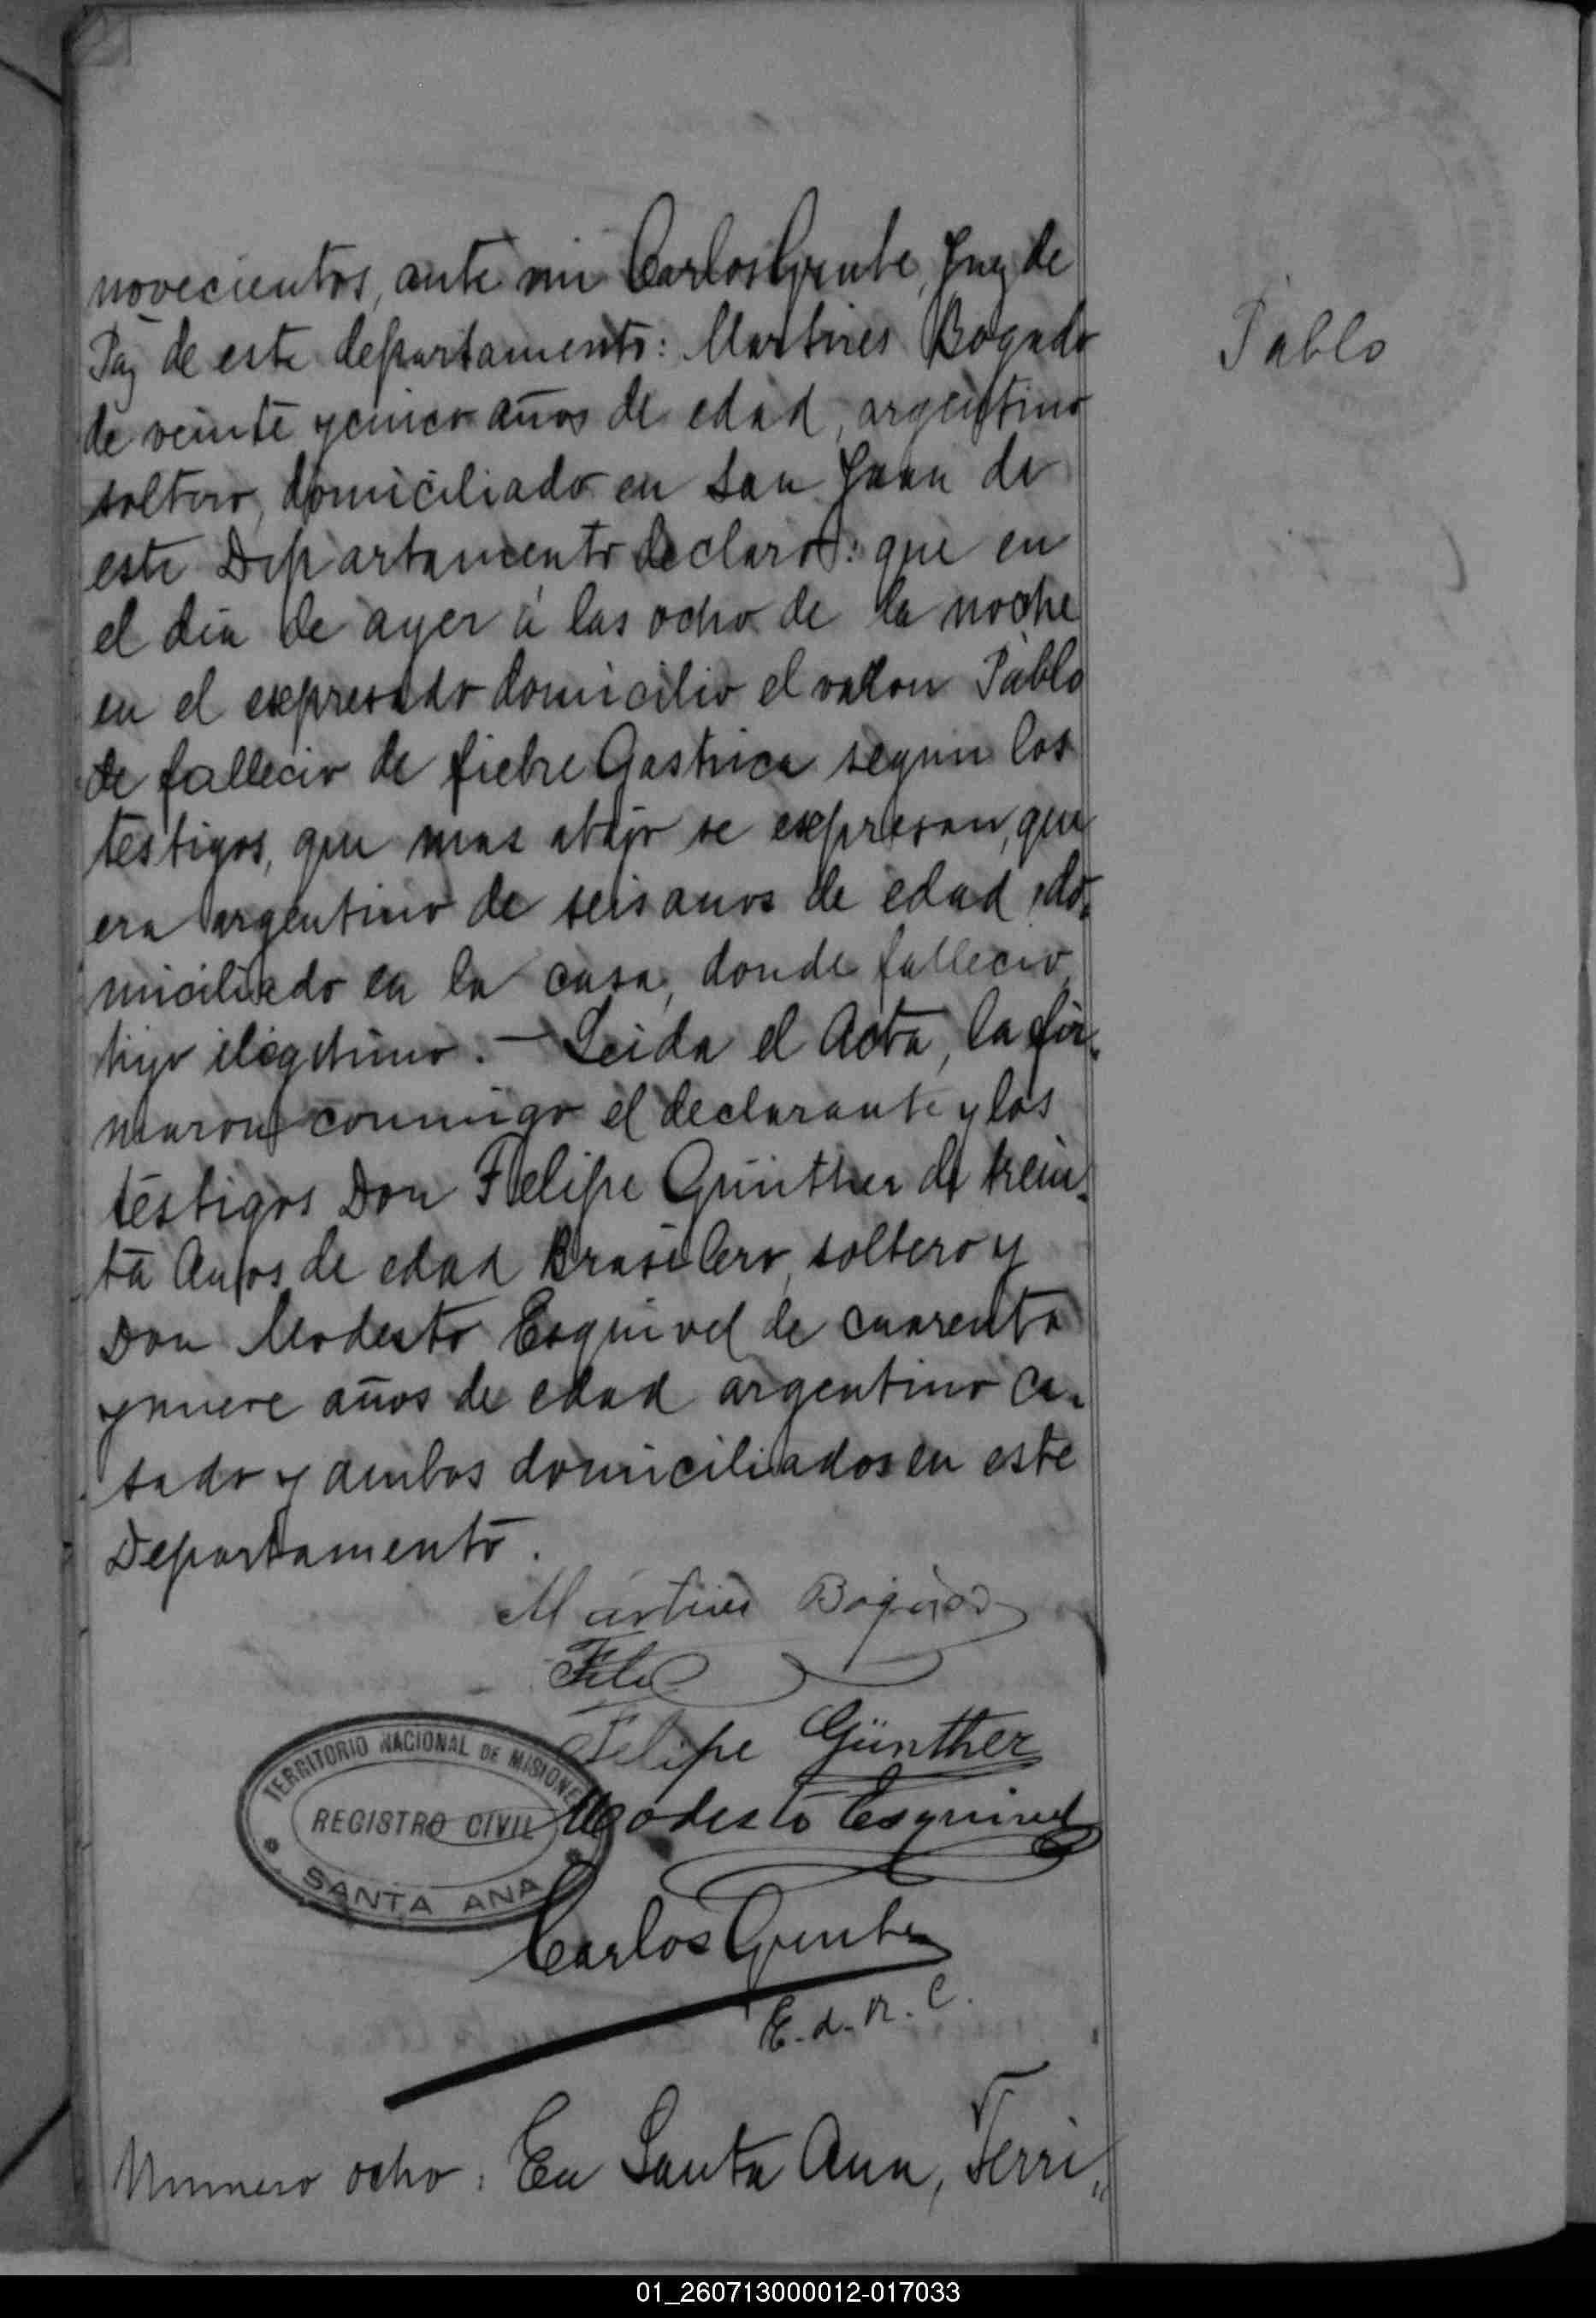 novecientos, ante mi Carlos Grube, Juez de
Paz de este departamento: Martires Bogado
de veinte y cinco años de edad, argentino
soltero, domiciliado en San Juan de
este Departamento declaró: que en
el dia de ayer á las ocho de la noche
en el expresado domicilio el varon Pablo
de fallecio de fiebre Gastrica segun los
testigos, que mas abajo se expresan, que
era argentino de seis anos de edad, do-
miciliado en la casa, donde fallecio,
hijo ilegitimo. - Leida el Acta, la fir-
maron conmigo el declarante y los
testigos Don Felipe Günther de trein-
ta Anos de edad Brasilero, soltero y
Don Modesto Esquivel de cuarenta
y nueve años de edad argentino ca-
sado y ambos domiciliados en este
Departamento.
Pablo
Martires Bogado
Felipe Günther
Modesto Esquivel
TERRITORIO NACIONAL DE MISIONES
REGISTRO CIVIL
SANTA ANA
Carlos Grube
E. d. R. C.
Numero ocho: En Santa Ana, Terri-
01_260713000012-017033